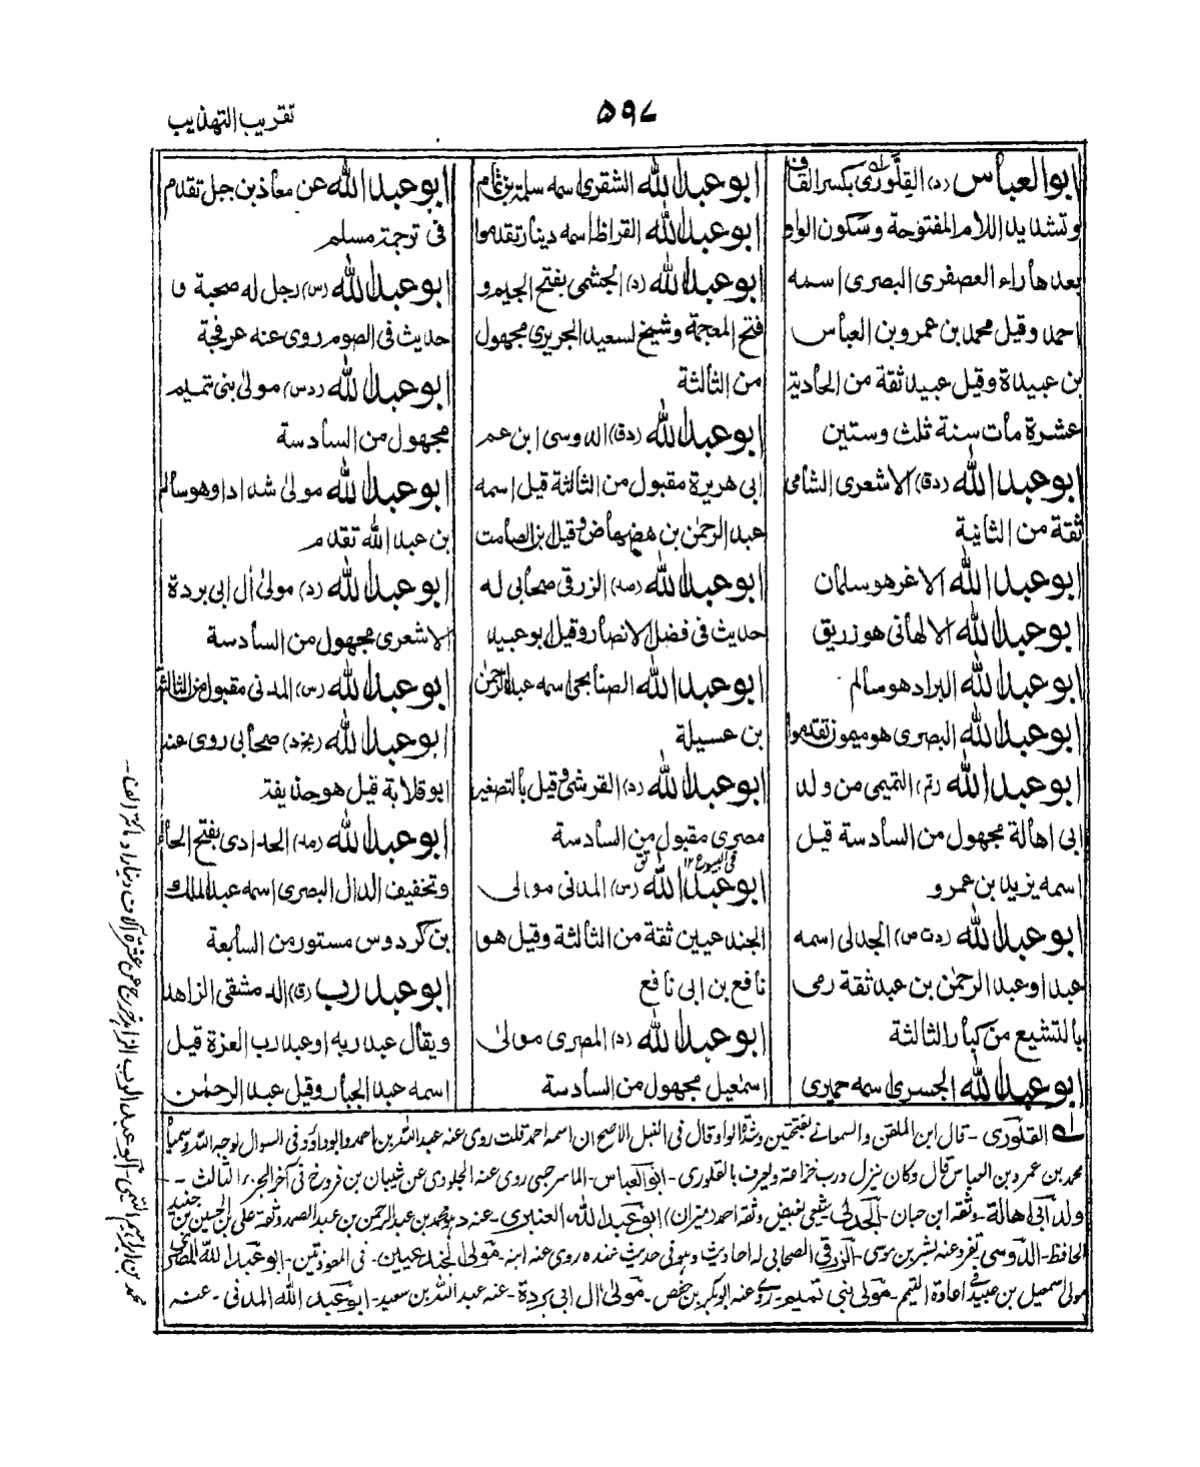 تقريب التهذيب
۵۹۷
ابو العباس (د) القِلَّوْرى بكسر القاف
وتشديد اللام المفتوحة وسكون الواو
بعدها راء العصفرى البصرى اسمه
احمد وقيل محمد بن عمرو بن العباس
بن عبيدة وقيل عبيد ثقة من الحادية
عشرة مات سنة ثلث وستين
ابو عبد الله (دق) الاشعرى الشامى
ثقة من الثانية
ابو عبد الله الاغر هو سلمان
ابو عبد الله الالهانى هو زريق
ابو عبد الله البراد هو سالم
ابو عبد الله البصرى هو ميمون تقدموا
ابو عبد الله (تم) التميمى من ولد
ابى اهالة مجهول من السادسة قيل
اسمه يزيد بن عمرو
ابو عبد الله (دت ص) الجدلى اسمه
عبد او عبد الرحمن بن عبد ثقة رمى
بالتشيع من كبار الثالثة
ابو عبد الله الجسرى اسمه حميرى
ابو عبد الله الشقرى اسمه سلمة بن تمام
ابو عبد الله القراظ اسمه دينار تقدموا
ابو عبد الله (د) الجشمى بفتح الجيم و
فتح المعجمة وشيخ لسعيد الجريرى مجهول
من الثالثة
ابو عبد الله (دق) الدوسى ابن عم
ابى هريرة مقبول من الثالثة قيل اسمه
عبد الرحمن بن هضهاض وقيل بن الصامت
ابو عبد الله (مد) الزرقى صحابى له
حديث فى فضل الانصار وقيل ابو عبيد
ابو عبد الله الصنابحى اسمه عبد الرحمن
بن عسيلة
ابو عبد الله (د) القرشى وقيل بالتصغير
مصرى مقبول من السادسة
ابو عبد الله (س) المدنى مولى
الجندعيين ثقة من الثالثة وقيل هو
نافع بن ابى نافع
ابو عبد الله (د) المصرى مولى
اسمعيل مجهول من السادسة
ابو عبد الله عن معاذ بن جبل تقدم
فى ترجمة مسلم
ابو عبد الله (س) رجل له صحبة و
حديث فى الصوم روى عنه عرفجة
ابو عبد الله (دس) مولى بنى تميم
مجهول من السادسة
ابو عبد الله مولى شداد وهو سالم
بن عبد الله تقدم
ابو عبد الله (د) مولى ال ابى بردة
الاشعرى مجهول من السادسة
ابو عبد الله (س) المدنى مقبول من الثالثة
ابو عبد الله (بخ د) صحابى روى عنه
ابو قلابة قيل هو حذيفة
ابو عبد الله (مد) الحدادى بفتح الحاء
وتخفيف الدال البصرى اسمه عبد الملك
بن كردوس مستور من السابعة
ابو عبد رب (ق) الدمشقى الزاهد
ويقال عبد ربه او عبد رب العزة قيل
اسمه عبد الجبار وقيل عبد الرحمن
القلورى - قال ابن الملقن والسمعانى بفتحتين وشدة الواو وقال فى النبل الاصح ان اسمه احمد قلت روى عنه عبد الله بن احمد وابو داؤد وفى السوال
محمد بن عمرو بن العباس قال وكان ينزل درب خزاعة ويعرف بالقلورى - ابو العباس - الماسرجسى روى عنه الجلودى عن شيبان بن فروخ فى آخر الجزء الثالث -
ولد ابى اهالة - وثقه ابن حبان - الجدلى شيعى بغيض وثقه احمد (ميزان) ابو عبد الله العنبرى - عنه د هو محمد بن عبد الرحمن بن عبد الصمد وثقه على بن الحسين بن جنيد
الحافظ - الدوسى تفرد عنه بشر بن موسى - الزرقى الصحابى له احاديث وهو فى حديث عنده روى عنه ابنه - مولى الجندعيين - فى المعوذتين - ابو عبد الله المصرى
مولى اسمعيل بن عبيد فى اعادة التيمم - مولى بنى تميم - روى عنه ابو بكر بن حفص - مولى ال ابى بردة - عنه عبد الله بن سعيد - ابو عبد الله المدنى - عنه
محمد بن ابراهيم التيمى - ابو عبد الرب الزاهد خرج عن عشرة آلاف دينار او مائة الف -